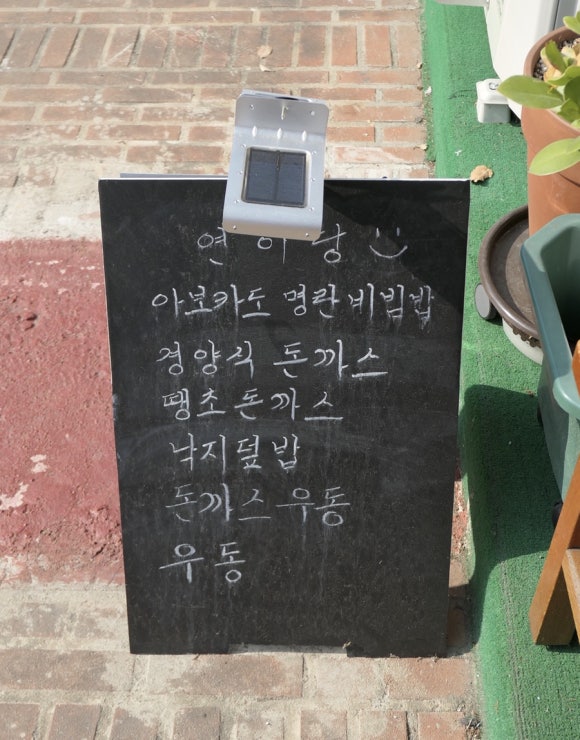 연이당
아보카도 명란 비빔밥
경양식 돈까스
땡초돈까스
낙지덮밥
돈까스 우동
우동